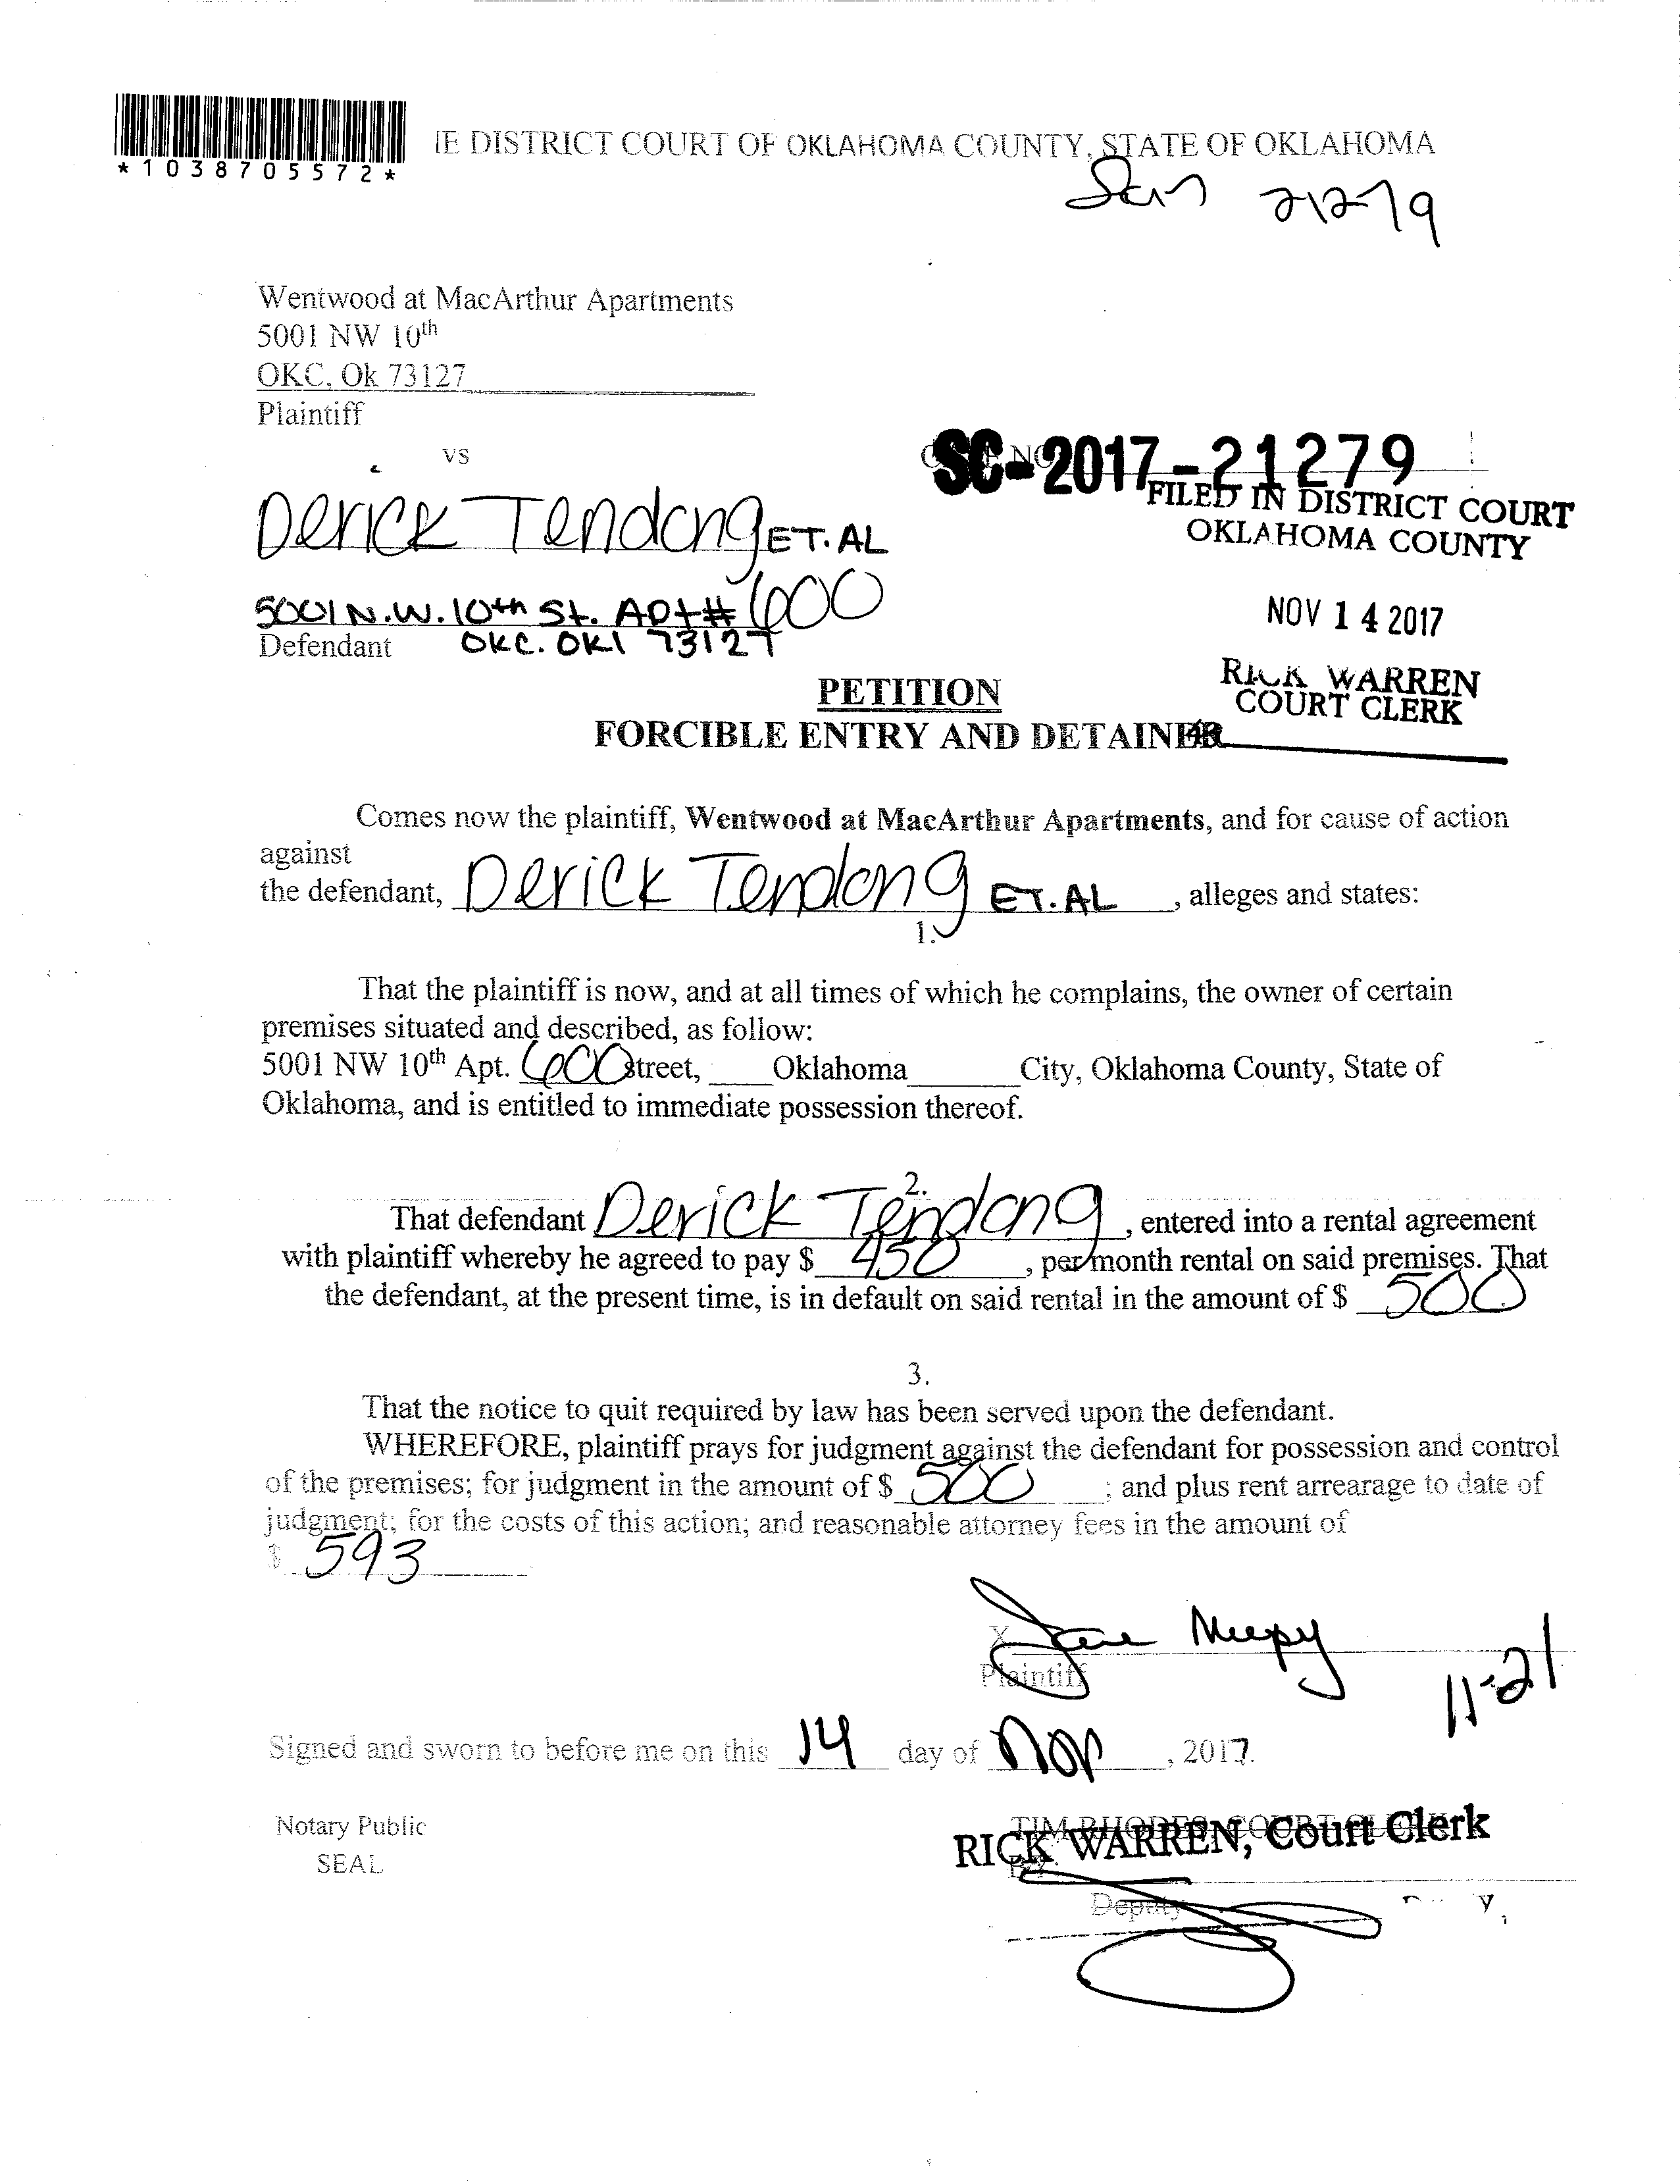 IE DISTRICT COURT OF OKLAHOMA COUNTY, STATE OF OKLAHOMA
*1038705572*
21279
Wentwood at MacArthur Apartments
5001 NW 10th
OKC, Ok 73127
Plaintiff
vs
SC-2017-21279
FILED IN DISTRICT COURT
OKLAHOMA COUNTY
Derick Tendong ET.AL
5001 N.W. 10th St. Apt# 600
NOV 14 2017
Defendant OKC. OKl 73127
RICK WARREN
COURT CLERK
PETITION
FORCIBLE ENTRY AND DETAINER
Comes now the plaintiff, Wentwood at MacArthur Apartments, and for cause of action
against
the defendant, Derick Tendong ET.AL , alleges and states:
1.
That the plaintiff is now, and at all times of which he complains, the owner of certain
premises situated and described, as follow:
5001 NW 10th Apt. 600 Street, Oklahoma City, Oklahoma County, State of
Oklahoma, and is entitled to immediate possession thereof.
2.
That defendant Derick Tendong , entered into a rental agreement
with plaintiff whereby he agreed to pay $ 450 , per month rental on said premises. That
the defendant, at the present time, is in default on said rental in the amount of $ 500
3.
That the notice to quit required by law has been served upon the defendant.
WHEREFORE, plaintiff prays for judgment against the defendant for possession and control
of the premises; for judgment in the amount of $ 500 ; and plus rent arrearage to date of
judgment; for the costs of this action; and reasonable attorney fees in the amount of
$ 593
X
Plaintiff
11-21
Signed and sworn to before me on this 14 day of Nov , 2017.
Notary Public
SEAL
TIM RHODES, COURT CLERK
RICK WARREN, Court Clerk
By:
Deputy